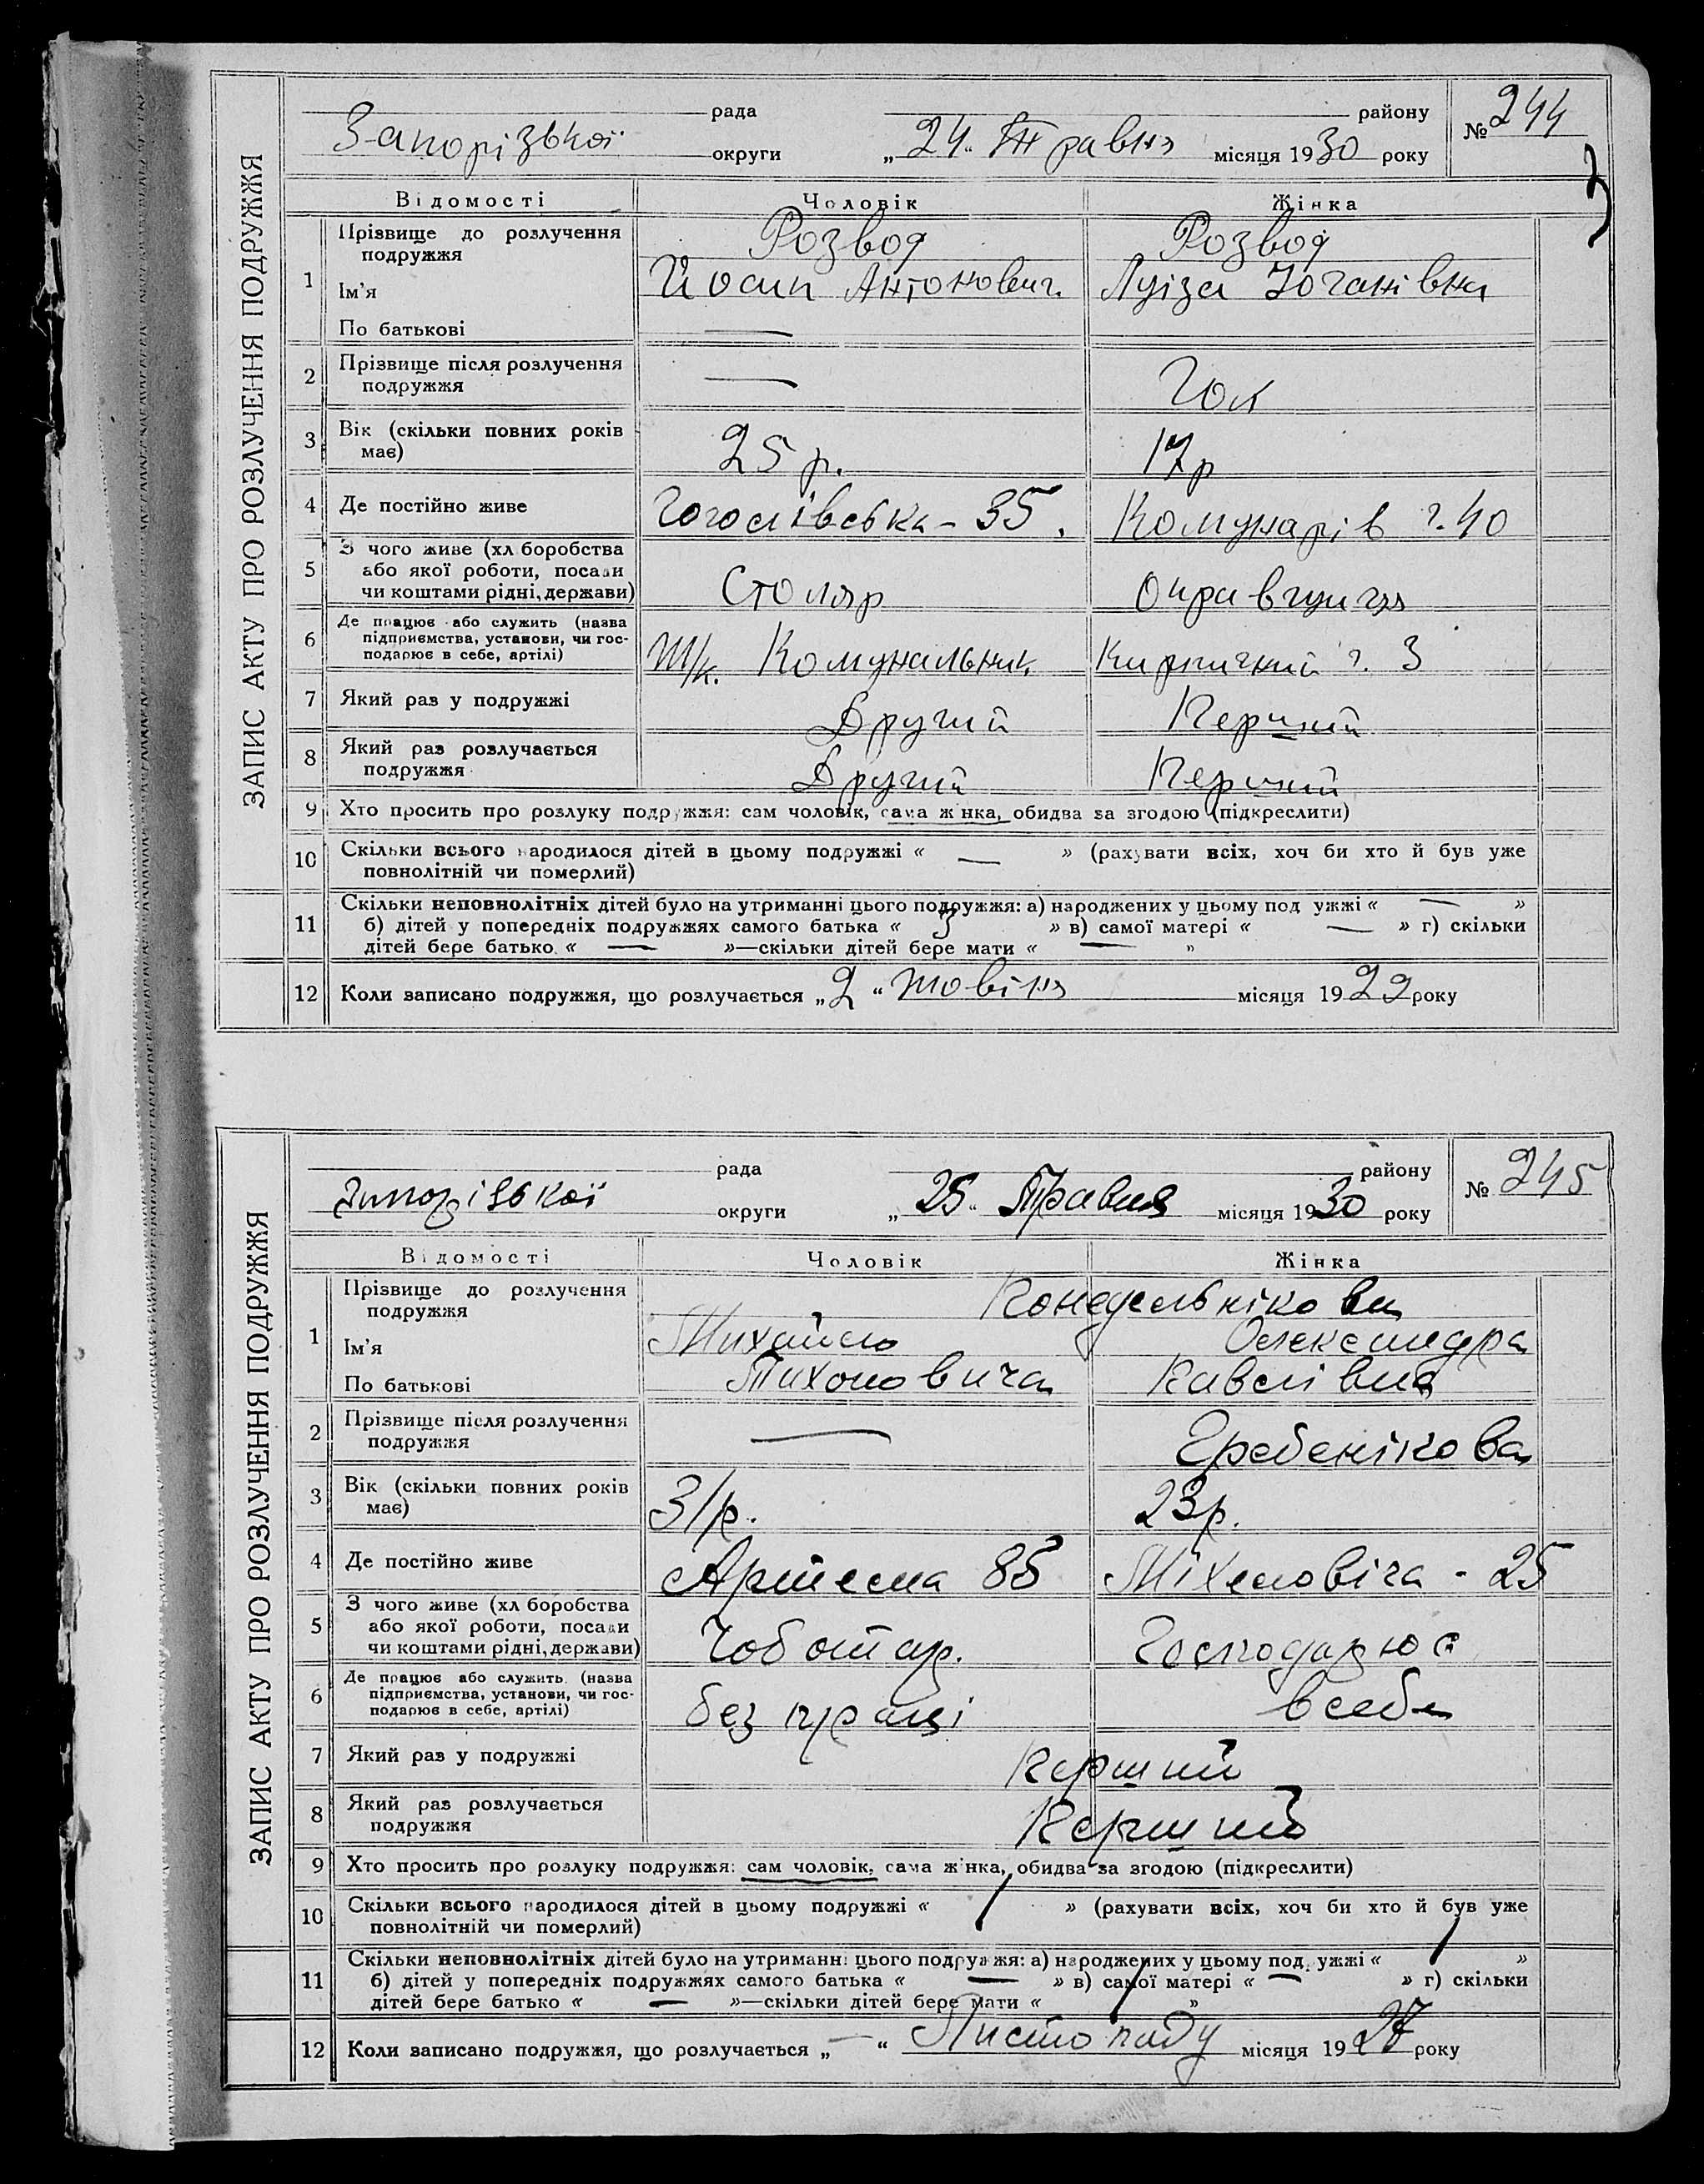 ЗАПИС АКТУ ПРО РОЗЛУЧЕННЯ ПОДРУЖЖЯ
рада району № 244
Запорізької округи „24“ Травня місяця 1930 року
Відомості Чоловік Жінка
1 Прізвище до розлучення подружжя Розвод Розвод
Ім'я Йосип Антонович. Луіза Йоганівна
По батькові —
2 Прізвище після розлучення подружжя — Гок
3 Вік (скільки повних років має) 25 р. 17 р
4 Де постійно живе Гоголівська - 35. Комунарів ч. 40
5 З чого живе (хліборобства або якої роботи, посади чи коштами рідні, держави) Столяр Оправщиця
6 Де працює або служить (назва підприємства, установи, чи господарює в себе, артілі) Т/к. Комунальник Кирпичний ч. 3
7 Який раз у подружжі Другий Перший
8 Який раз розлучається подружжя Другий Перший
9 Хто просить про розлуку подружжя: сам чоловік, сама жінка, обидва за згодою (підкреслити)
10 Скільки всього народилося дітей в цьому подружжі « — » (рахувати всіх, хоч би хто й був уже
повнолітній чи померлий)
11 Скільки неповнолітніх дітей було на утриманні цього подружжя: а) народжених у цьому подружжі « — »
б) дітей у попередніх подружжях самого батька « 3 » в) самої матері « — » г) скільки
дітей бере батько « — »—скільки дітей бере мати « — »
12 Коли записано подружжя, що розлучається „2“ Жовтня місяця 1929 року
ЗАПИС АКТУ ПРО РОЗЛУЧЕННЯ ПОДРУЖЖЯ
рада району № 245
Запорізької округи „25“ Травня місяця 1930 року
Відомості Чоловік Жінка
1 Прізвище до розлучення подружжя Понедельнікова
Ім'я Михайло Олександра
По батькові Тихоновича Павлівна
2 Прізвище після розлучення подружжя — Гребенікова
3 Вік (скільки повних років має) 31 р. 23 р.
4 Де постійно живе Артема 85 Міхеловіча - 25
5 З чого живе (хліборобства або якої роботи, посади чи коштами рідні, держави) Чоботар. Господарює
6 Де працює або служить (назва підприємства, установи, чи господарює в себе, артілі) без праці в себе
7 Який раз у подружжі Перший
8 Який раз розлучається подружжя Перший
9 Хто просить про розлуку подружжя: сам чоловік, сама жінка, обидва за згодою (підкреслити)
10 Скільки всього народилося дітей в цьому подружжі « 1 » (рахувати всіх, хоч би хто й був уже
повнолітній чи померлий)
11 Скільки неповнолітніх дітей було на утриманні цього подружжя: а) народжених у цьому подружжі « 1 »
б) дітей у попередніх подружжях самого батька « — » в) самої матері « — » г) скільки
дітей бере батько « — »—скільки дітей бере мати « 1 »
12 Коли записано подружжя, що розлучається „—“ Листопаду місяця 1927 року